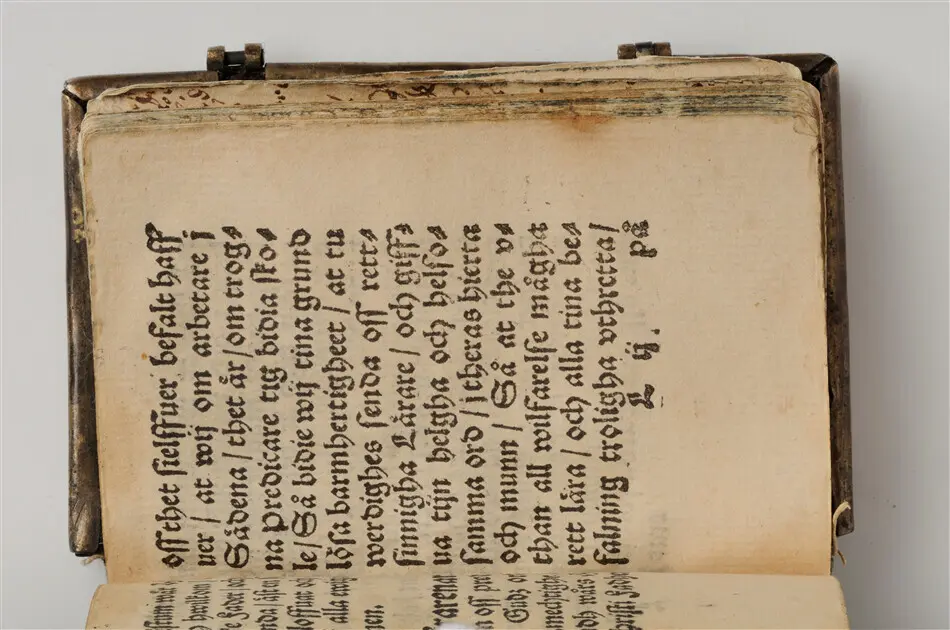 oſſ thet ſielffuer befalt haff
uer / at wij om arbetare j
Sådena / thet är / om trog⸗
na Predicare tig bidia ſko⸗
le / Så bidie wij tina grund
löſa barmhertigheet / at tu
werdighes ſenda oſſ rett⸗
ſinnigha Lärare / och giff⸗
ua tijn helgha och helſo⸗
ſamma ord / j theras hierta
och munn / Så at the v⸗
than all wilfarelſe mågha
rett lära / och alla tina be⸗
falning troligha vthretta /
L ij. på